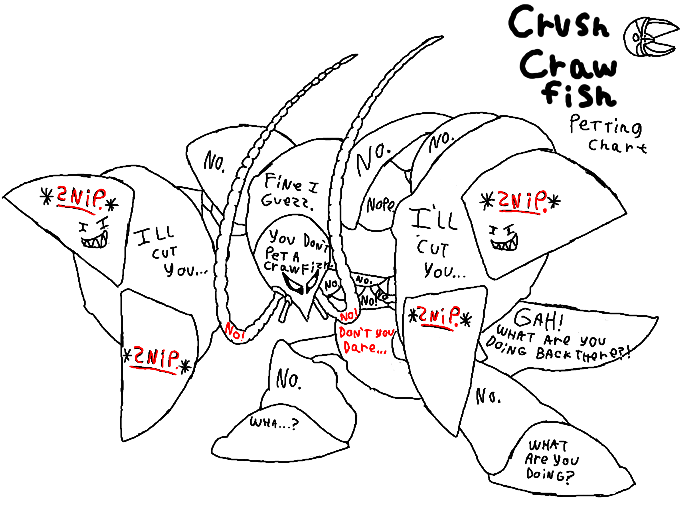 Crush
Craw
fish
Petting
Chart
No.
No.
No.
Fine I
Guezz.
Nope.
*2NiP.*
*2NiP.*
I'LL
CUT
YOU...
I'LL
CUT
YOU...
You Don't
Pet A
Crawfizh.
No.
No.
No!
No!
No!
Don't you
Dare...
*2NiP.*
*2NiP.*
GAH!
WHAT Are you
DOING BACK THere?!
No.
No.
WHA...?
WHAT
Are you
DOING?